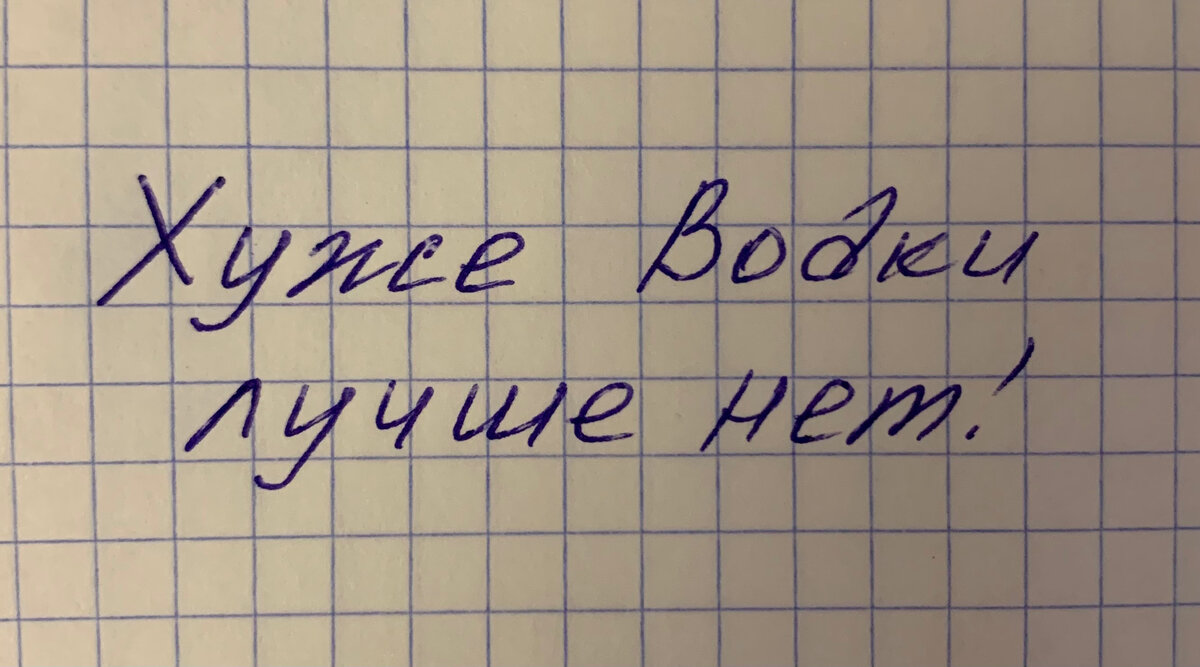 Хуже Водки
лучше нет!